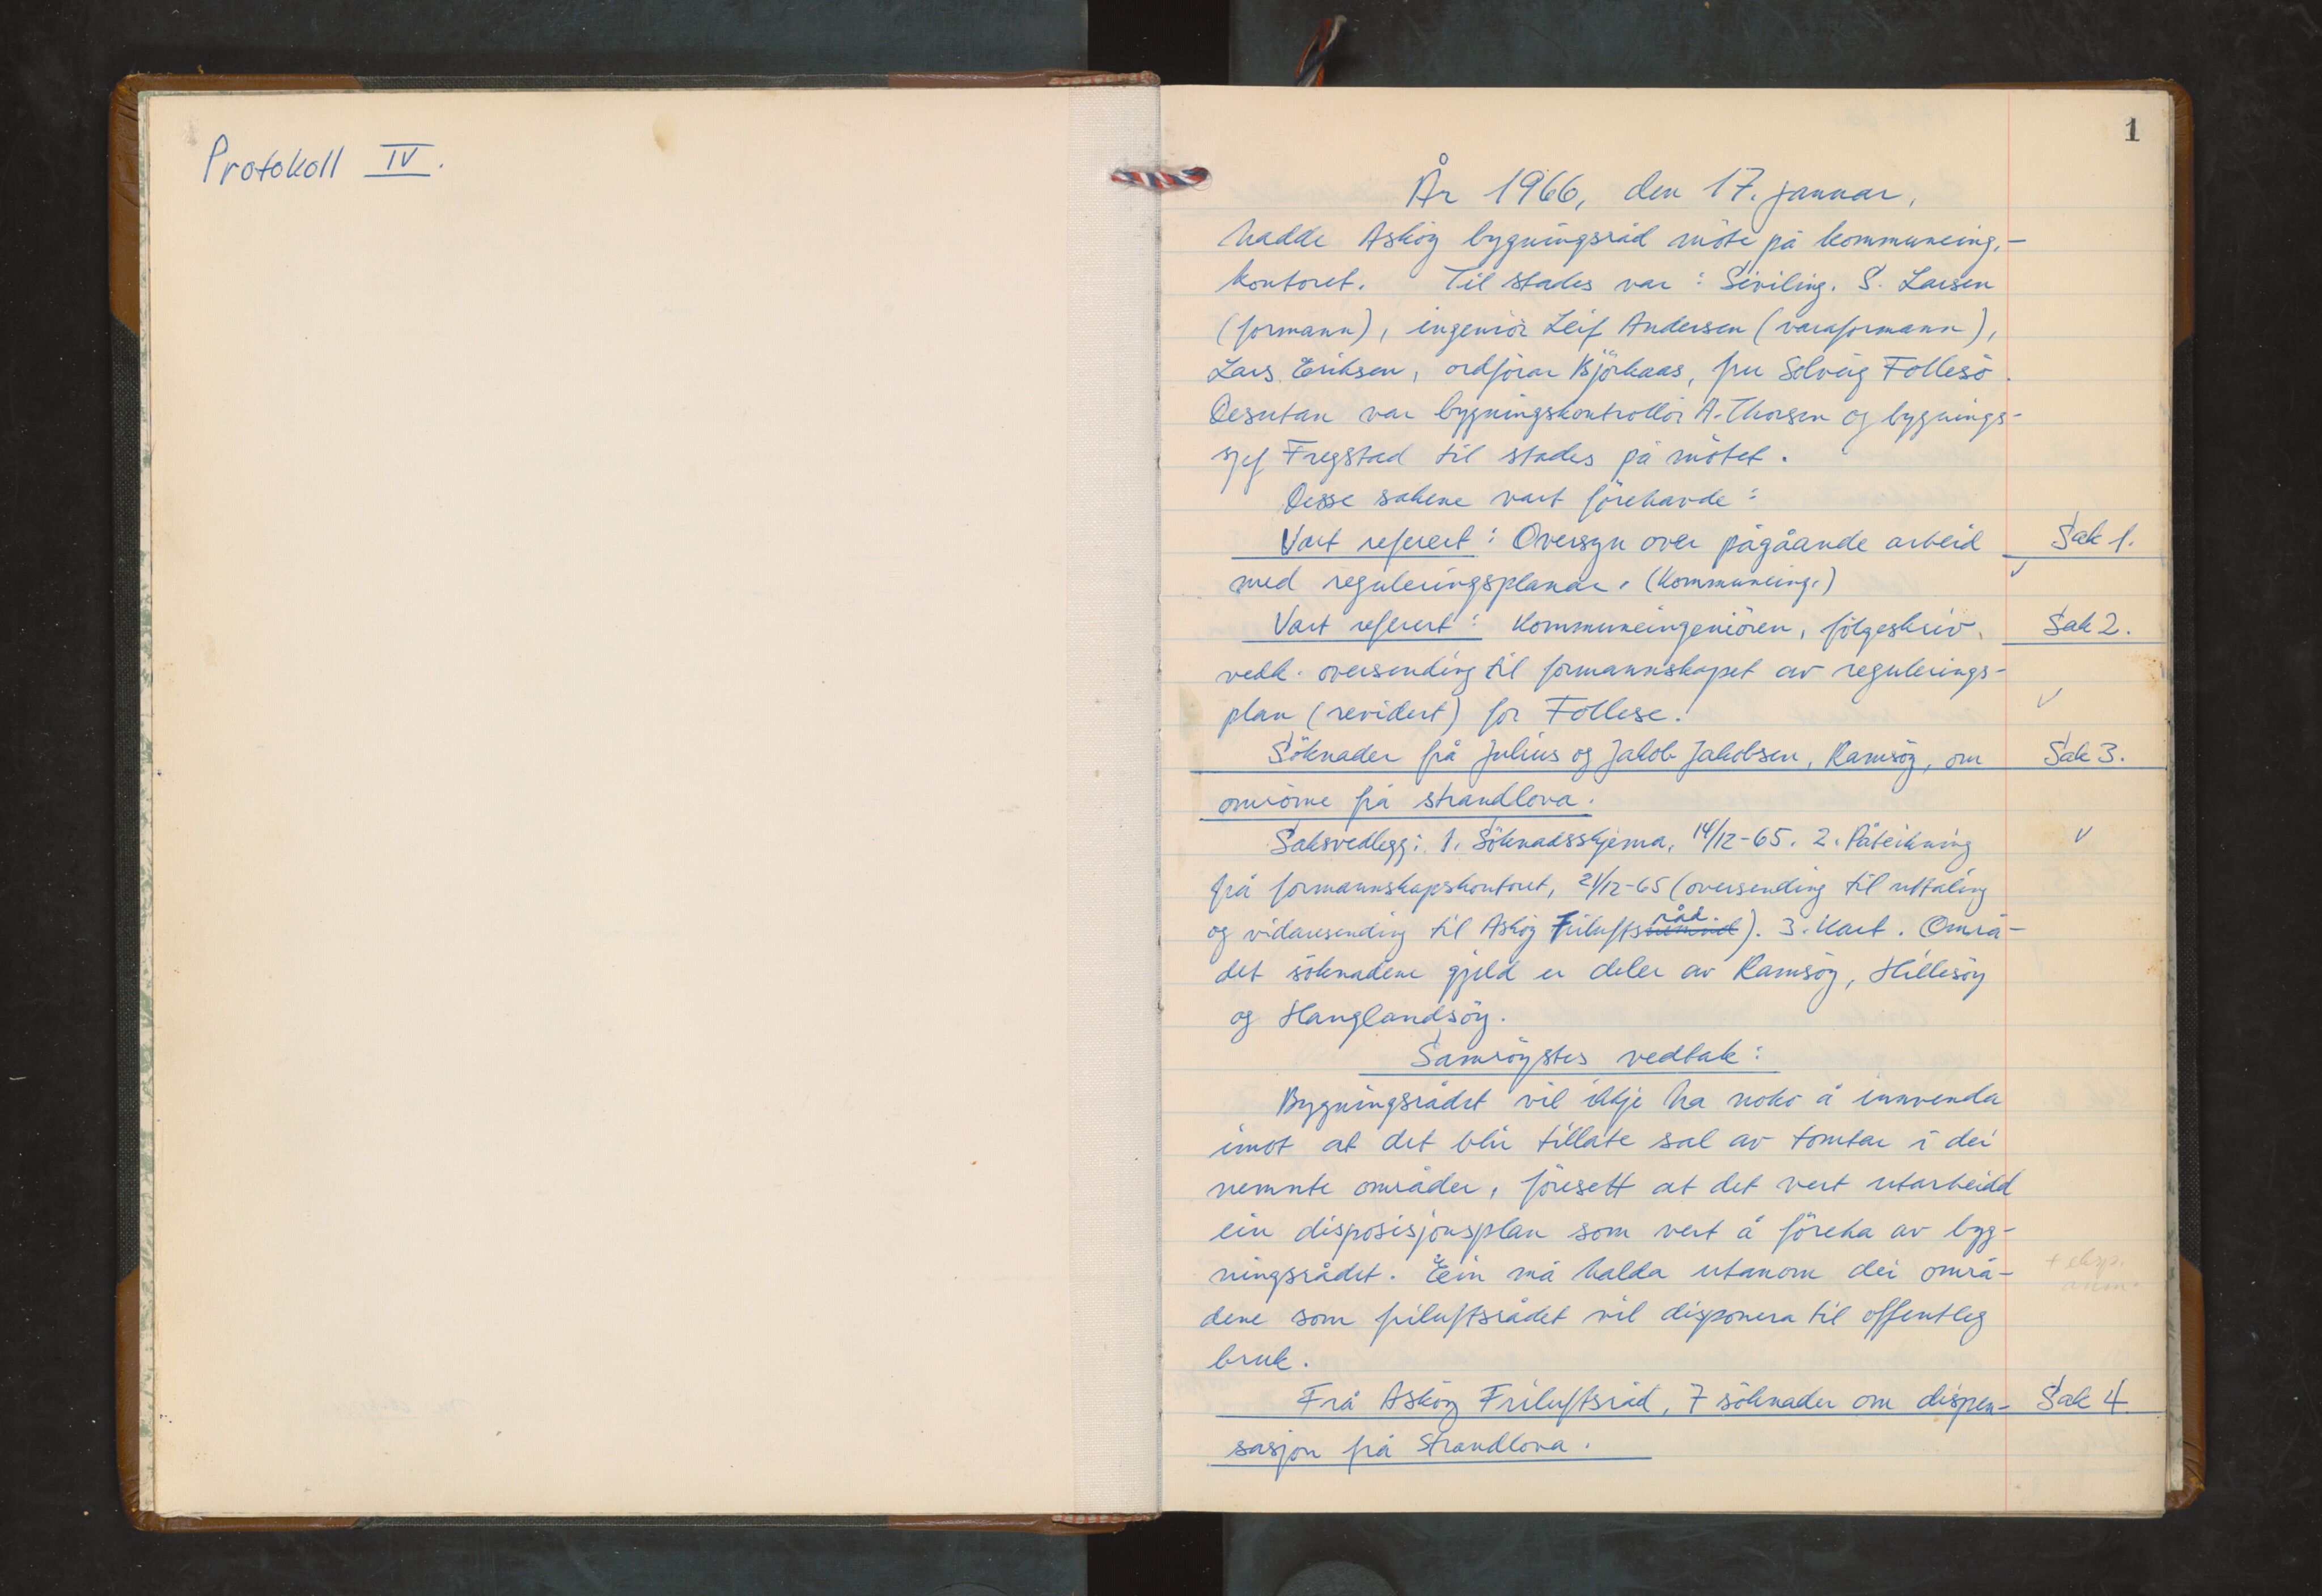 Protokoll IV.
1
År 1966, den 17. januar,
hadde Asköy bygningsråd möte på kommuneing.-
kontoret. Til stades var: Siviling. S. Larsen
(formann), ingeniör Leif Andersen (varaformann),
Lars Eriksen, ordförar Björkaas, fru Solveig Follesö.
Desutan var bygningskontrollör A. Thorsen og bygnings-
sjef Fregstad til stades på mötet.
Desse sakene vart förehavde:
Vart referert: Oversyn over pågåande arbeid Sak 1.
med reguleringsplanar. (Kommuneing.)
Vart referert: Kommuneingeniören, fölgeskriv. Sak 2.
vedk. oversending til formannskapet av regulerings-
plan (revidert) for Follese.
Söknader frå Julius og Jakob Jakobsen, Ramsöy, om Sak 3.
omröme frå strandlova.
Saksvedlegg: 1. Söknadsskjema, 14/12-65. 2. Påteikning
frå formannskapskontoret, 21/12-65 (oversending til uttaling
og vidaresending til Asköy Friluftsråd). 3. Kart. Områ-
det söknadene gjeld er deler av Ramsöy, Hillesöy
og Hanglandsöy.
Samröystes vedtak:
Bygningsrådet vil ikkje ha noko å innvenda
imot at det blir tillate sal av tomtar i dei
nemnte områder, föresett at det vert utarbeidd
ein disposisjonsplan som vert å föreha av byg-
ningsrådet. Ein må halda utanom dei områ-
dene som friluftsrådet vil disponera til offentleg
bruk.
Frå Asköy Friluftsråd, 7 söknader om dispen- Sak 4
sasjon frå Strandlova.